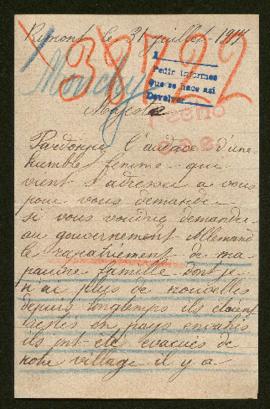 Ribmont le 31 juillet 1917
38722
Mouchy
1
Pedir informes
Que se hace asi
Devolver
Majesté
Pardonnez l'audace d'une
humble femme qui
vient s'adresser a vous
pour vous demander
si vous voudriez demander
au gouvernement Allemand
le rapatriement de ma
pauvre famille dont je
n'ai plus de nouvelles
depuis longtemps ils étaient
restés en pays envahis
ils ont été évacués de
notre village il y a